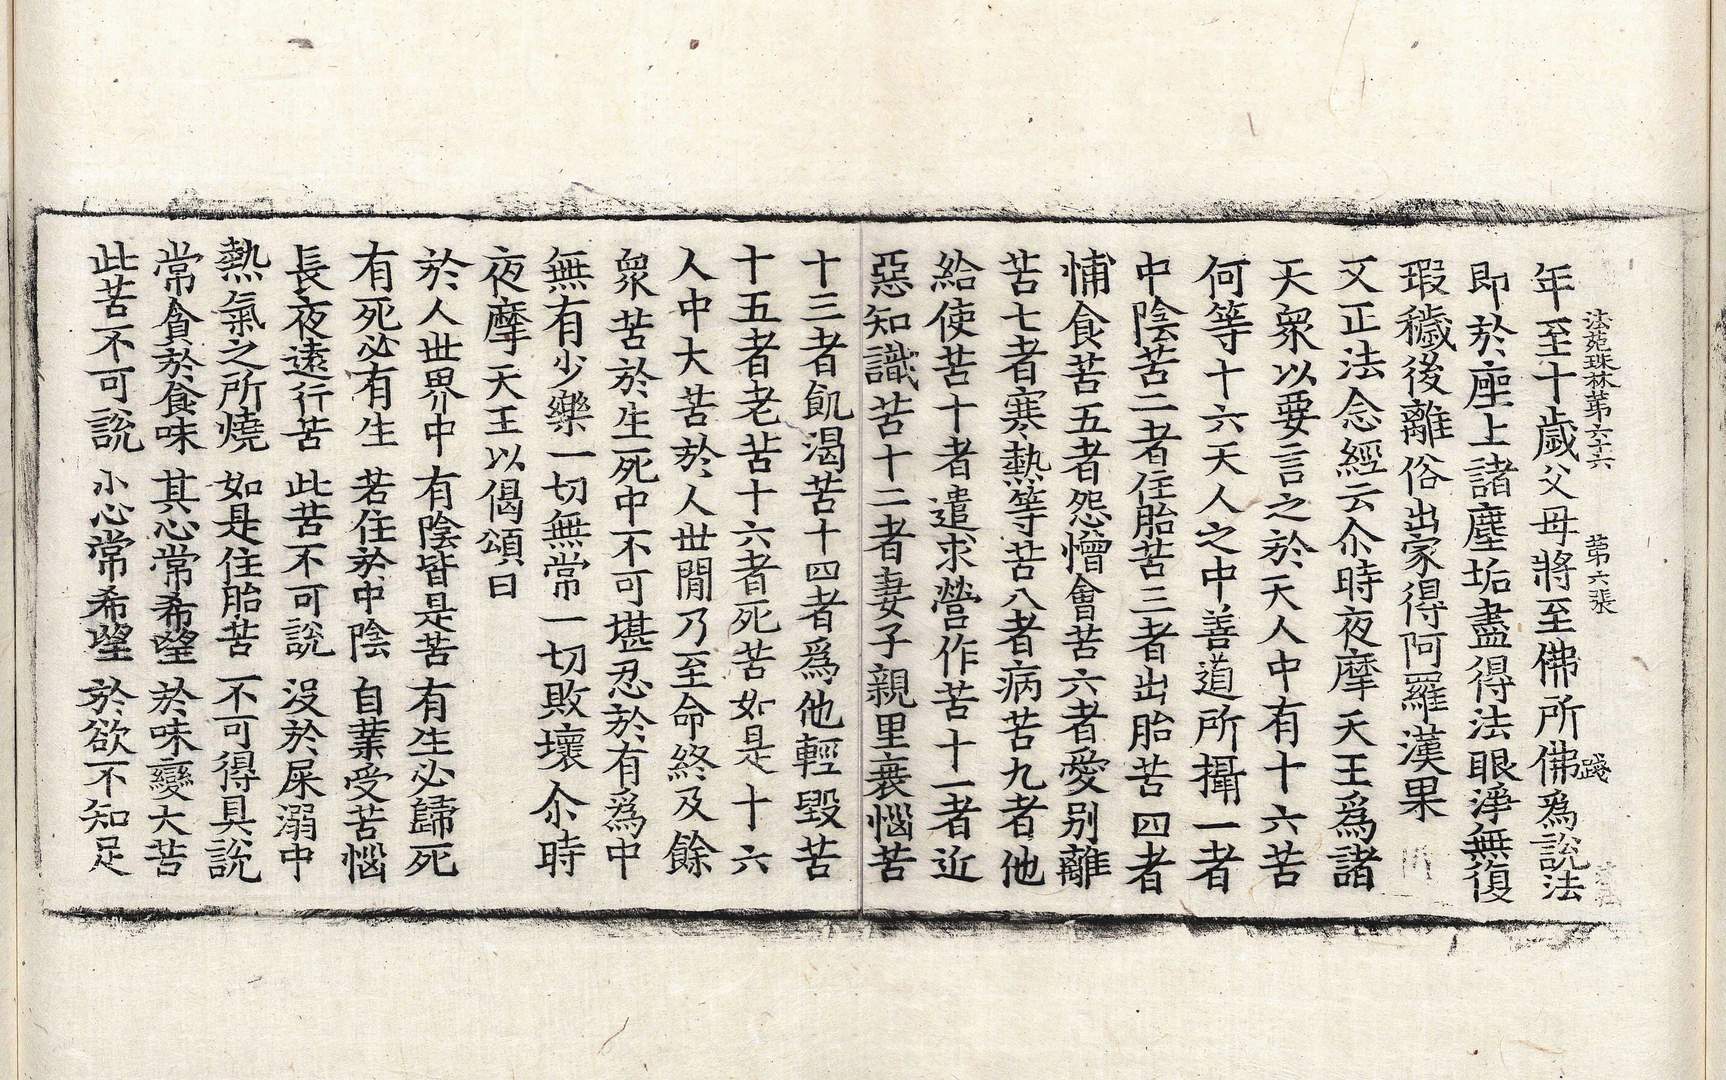 法苑珠林第六十六 第六張 踐
年至十歲父母將至佛所佛爲說法
即於座上諸塵垢盡得法眼淨無復
瑕穢後離俗出家得阿羅漢果
又正法念經云尒時夜摩天王爲諸
天衆以要言之於天人中有十六苦
何等十六天人之中善道所攝一者
中陰苦二者住胎苦三者出胎苦四者
悕食苦五者怨憎會苦六者愛别離
苦七者寒熱等苦八者病苦九者他
給使苦十者遣求營作苦十一者近
惡知識苦十二者妻子親里衰惱苦
十三者飢渴苦十四者爲他輕毀苦
十五者老苦十六者死苦如是十六
人中大苦於人世閒乃至命終及餘
衆苦於生死中不可堪忍於有爲中
無有少樂一切無常一切敗壞尒時
夜摩天王以偈頌曰
於人世界中 有陰皆是苦 有生必歸死
有死必有生 若住於中陰 自業受苦惱
長夜遠行苦 此苦不可說 沒於屎溺中
熱氣之所燒 如是住胎苦 不可得具說
常貪於食味 其心常希望 於味變大苦
此苦不可說 小心常希望 於欲不知足